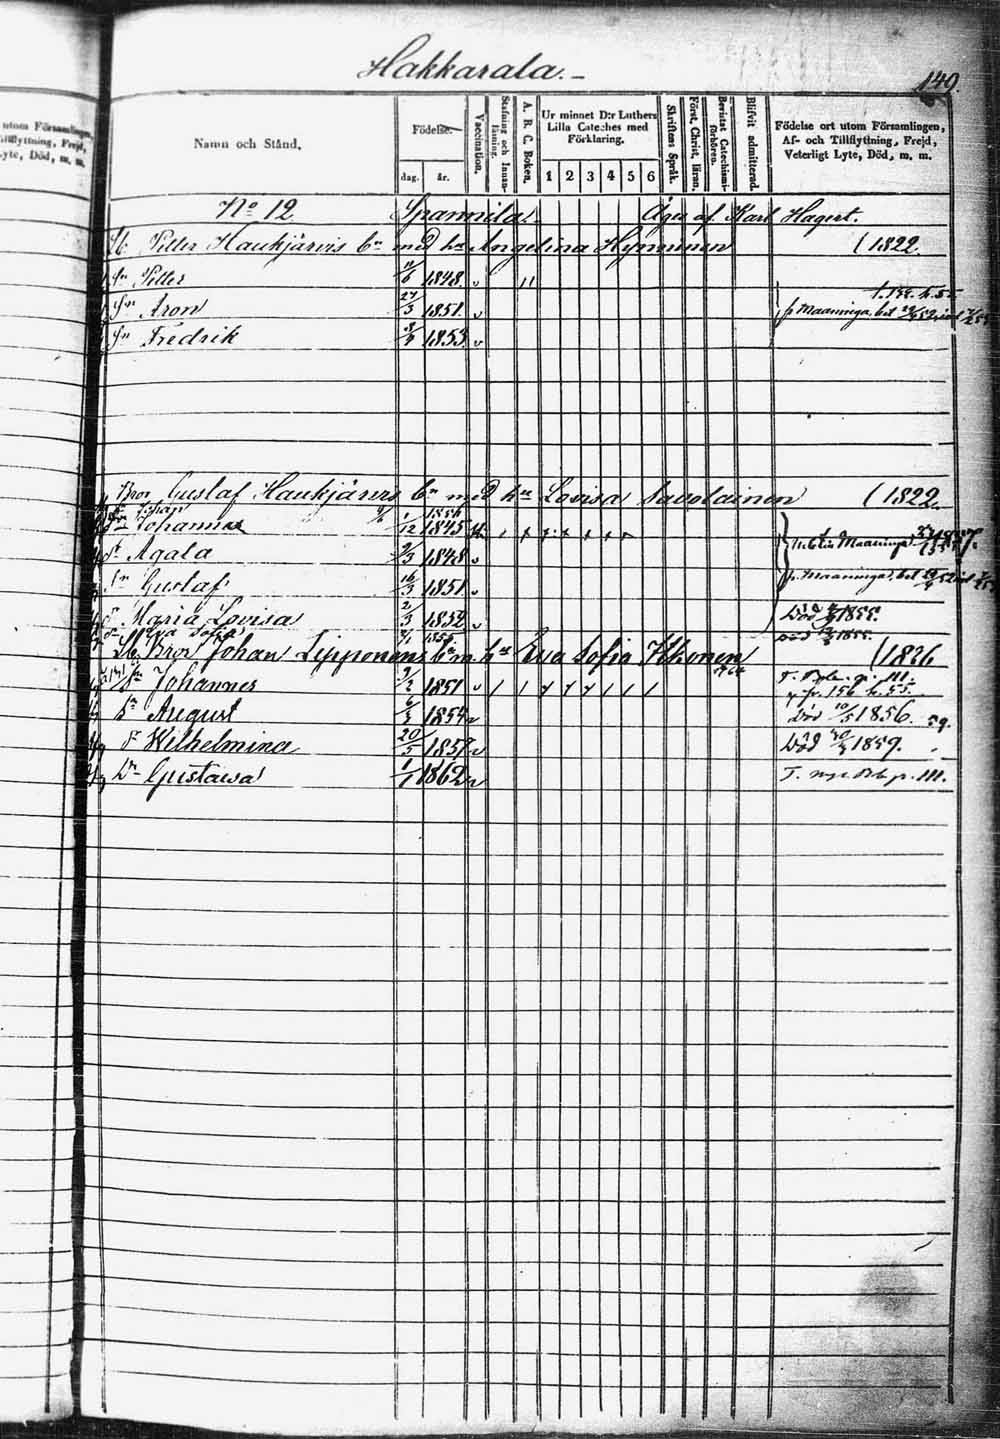 Hakkarala.
149.
utom Församlingen,
Tillflyttning, Frejd,
Lyte, Död, m. m.
Namn och Stånd.
Födelse.
dag. år.
Vaccination.
Stafning och Innan-läsning.
A. B. C. Boken.
Ur minnet D:r Luthers Lilla Cateches med Förklaring.
1 2 3 4 5 6
Skriftens Språk.
Först. Christ. läran.
Bevistat Catechismi-förhören.
Blifvit admitterad.
Födelse ort utom Församlingen,
Af- och Tillflyttning, Frejd,
Veterligt Lyte, Död, m. m.
No 12 Spannila Äges af Karl Hagert.
Petter Haukjärvis bn med hu Angelina Hynninen (1822.
Sn Petter 11/6 1848. v
Sn Aron 27/3 1851. v
fr Maaninga, bet
Sn Fredrik 1853. v
Bror Gustaf Haukjärvis bn med hu Lovisa Savolainen (1822.
Johan 1856
Johannes 1/12 1845
Maaninga
dr Agata 2/3 1848 v
Sn Gustaf 16/3 1851.
fr Maaninga, bet
dr Maria Lovisa 2/3 1852 v Död 1855.
Eva Sofia död 1855.
Bror Johan Lipponens bn m. hu Eva Sofia Itkonen (1826
Sn Johannes 3/2 1851 v T. p. 111.
fr. 156
Sn August 6/3 1854 v Död 10/5 1856.
59.
dr Wilhelmina 20/5 1857. v Död 1859.
Dr Gustawa 1/1 1862 v T. nya Rb. p. 111.